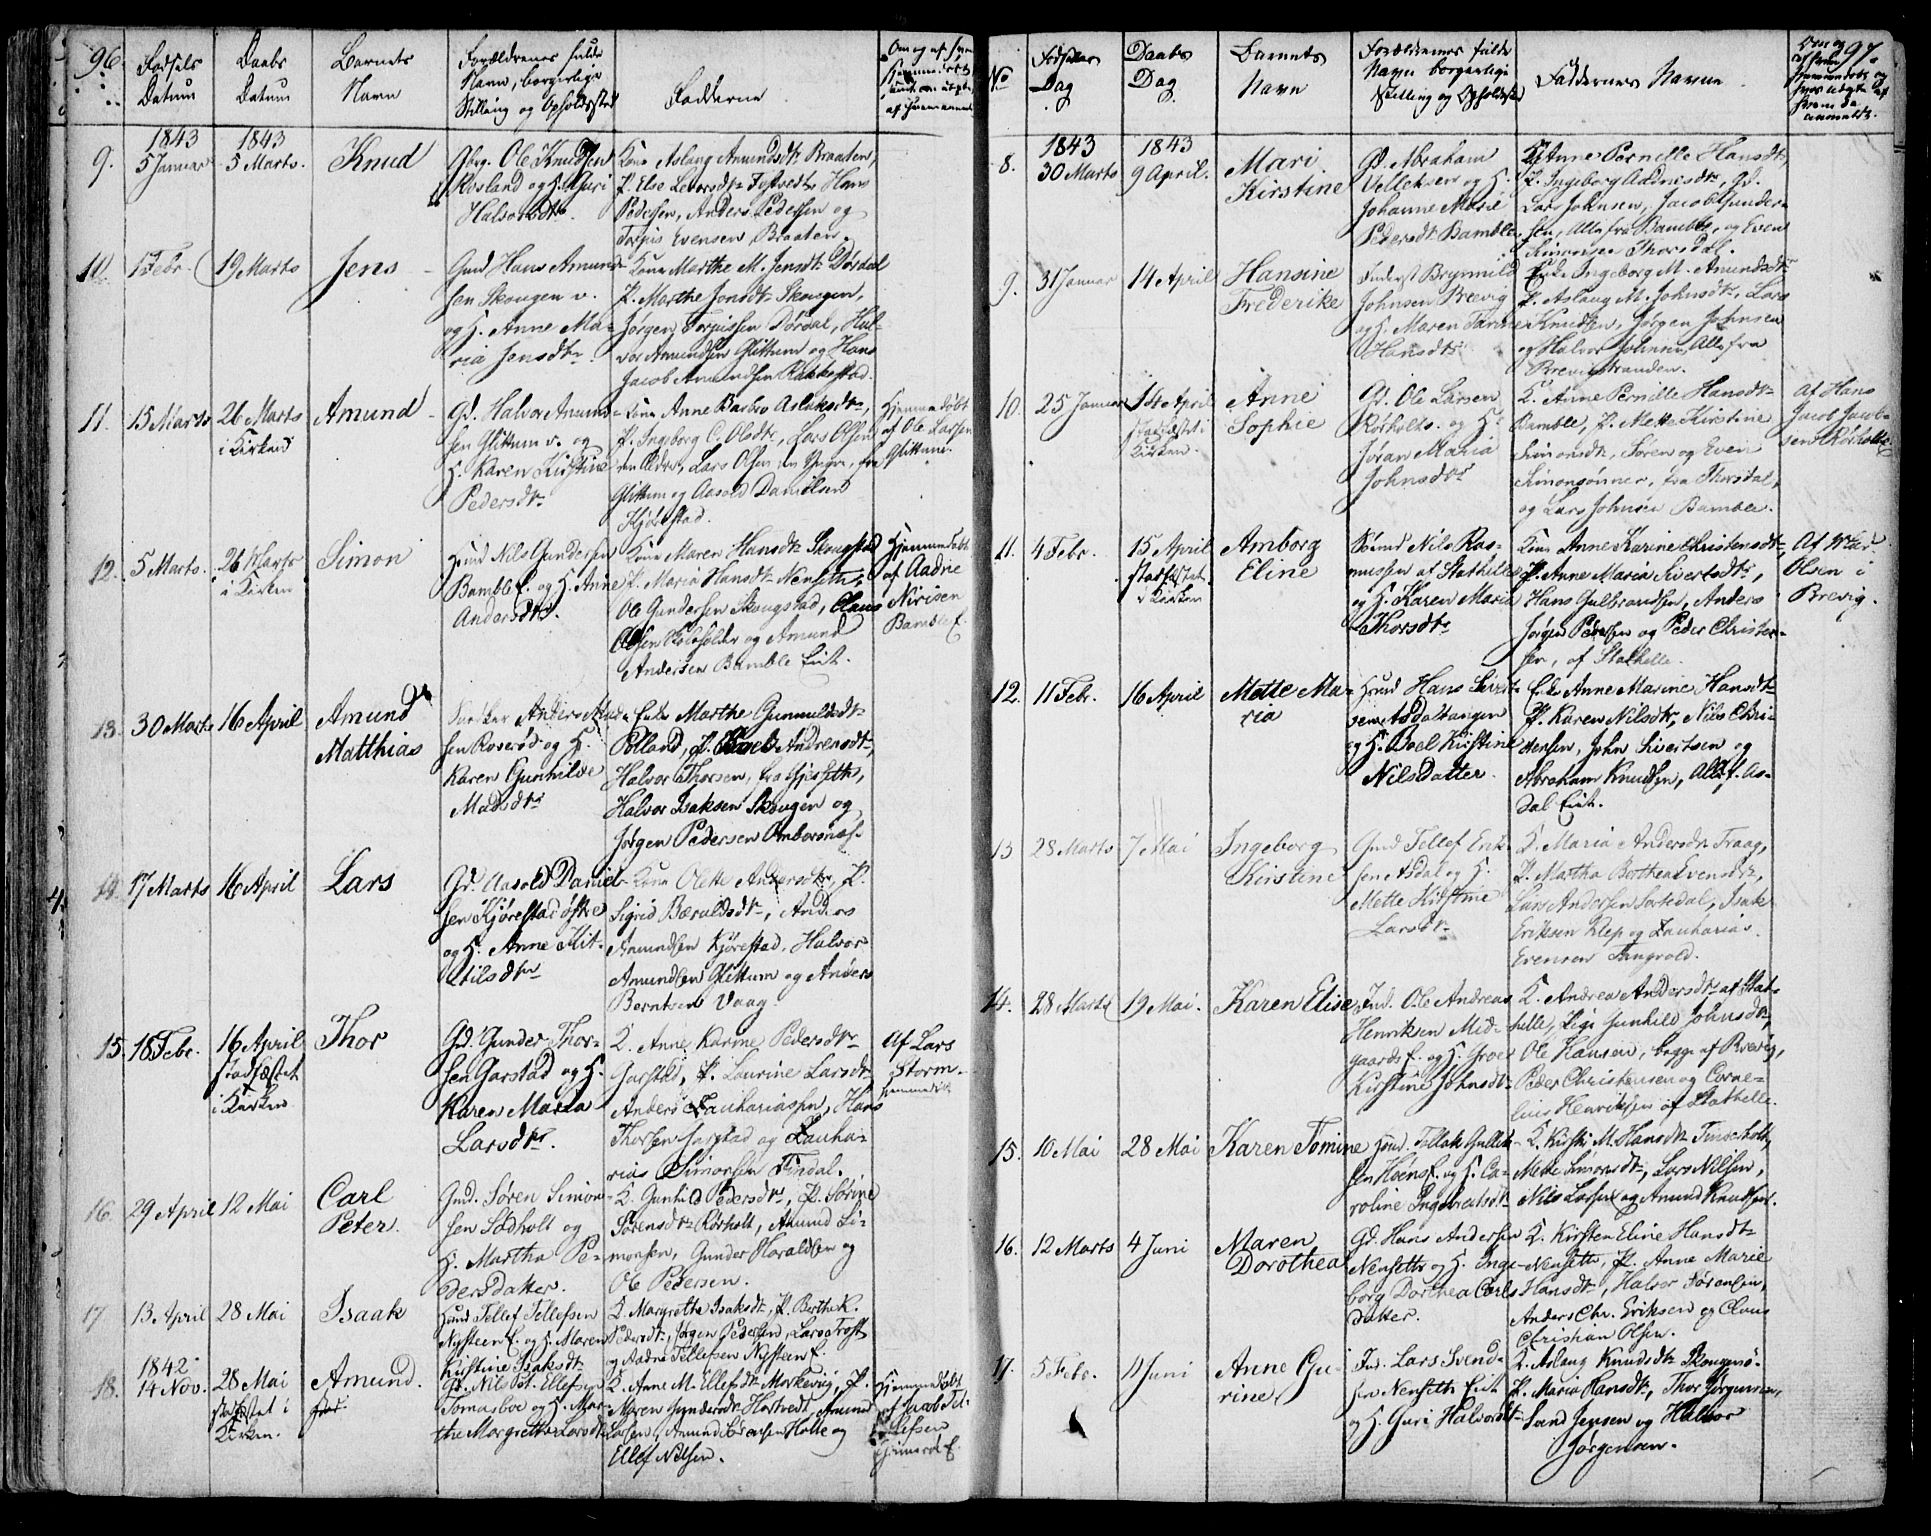 96.
Fødsels Datum
Daabs Datum
Barnets Navn
Forældrenes fulde
Navn, borgerlige
Stilling og Opholdssted
Fadderne
1843
1843
9.
5 Januar
5 Marts.
Knud
Gbrg. Ole Knudsen
Rosland og H. Guri
Halvorsdtr.
Kone Aslaug Amundsdtr Braaten,
P. Else Larsdtr Hans
Pedersen, Anders Pedersen og
Torgus Evensen, Braaten.
10.
1 Febr.
19 Marts
Jens
Gmd Hans Amund-
sen Skougen v.
og H. Anne Ma-
ria Jensdtr.
Kone Marthe M. Jensdtr Dørdal
P. Marthe Jonsdtr Skougen,
Jørgen Torgussen Dørdal, Hal-
vor Amundsen Glittum og Hans
Jacob Amundsen Rakkestad.
11.
15 Marts
26 Marts
i Kirken
Amund
Gd. Halvor Amund-
sen Glittum v. og
H. Karen Kirstine
Pedersdtr
Kone Anne Barbro Aslaksdtr,
P. Ingeborg C. Olsdtr, Lars Olsen
den Ældre, Lars Olsen den Yngre, fra
Glittum og Aasold Danielsen
Kjørstad.
Hjemmedøbt
af Ole Larsen
Glittum.
12.
5 Marts.
26 Marts
i Kirken
Simon
Huusd Nils Gundersen
Bamble E. og H. Anne
Andersdtr.
Kone Maren Hansdtr Skougstad
P. Maria Hansdtr Nenseth,
Ole Gundersen Skougstad, Claus
Olsen og Amund
Andersen Bamble Eiet.
Hjemmedøbt
af Aadne
Nirisen
Bamble E.
13.
30 Marts
16 April
Amund
Matthias
Anders Mad-
sen Roserød og H.
Karen Gunhilde
Madsdtr
Enke Marthe Gunnuldsdtr
Polland, P. Andreasdtr,
Halvor Thorsen, fra
Halvor Isaksen Skougen og
Jørgen Pedersen Omborsnæs.
14.
17 Marts
16 April
Lars
Gd. Aasold Daniel-
sen Kjørestad østre
og H. Anne Kit-
tilsdtr
Kone Olette Andersdtr, P.
Sigrid Bæruldsdtr, Anders
Amundsen Kjørestad, Halvor
Amundsen Glittum og Anders
Berntsen Vaag.
15.
18 Febr.
16 April
stadfæstet
i Kirken
Thor
Gd. Gunder Thor-
sen Garstad og H.
Karen Maria
Larsdtr.
K. Anne Karine Pedersdtr
Garstad, P. Laurine Larsdtr
Anders Zachariassen, Hans
Thorsen Garstad og Zacha-
rias Simonsen Findal.
Af Lars
Storm
16.
29 April
12 Mai
Carl
Peter.
Gmd. Søren Simon-
sen Sødholt og
H. Martha Pe-
dersdatter.
K. Gunhild Pedersdtr, P. Sørine
Sørensdtr Rørholt, Amund Si-
monsen, Gunder Haraldsen og
Ole Pedersen.
17
13 April
28 Mai
Isaak
Huusd Tellef Tellefsen
Nysteen E. og H. Maren
Kirstine Isaksdtr
K. Margrethe Isaksdtr, P. Berthe K.
Pedersdtr, Jørgen Pedersen, Lars Trost
og Aadne Tellefsen Nysteen E.
1842
18.
14 Nov.
28 Mai
stadfæstet i
Kirken.
Amund.
Gd. Nils Pet. Ellefsen
Tomasboe og H. Mar-
the Margrethe Larsdtr
K. Anne M. Ellefsdtr Morkevig, P.
Maren Gundersdtr Hortvedt, Amund
Larsen, Amund Sørensen Holte og
Ellef Nilsen.
Hjemmedøbt
af Jacob Tel-
lefsen
97.
No
Fødsels Dag
Daabs Dag
Barnets Navn
Forældrenes fulde
Navn borgerlige
Stilling og Opholdssted
Faddernes Navne
1843
1843
8.
30 Marts
9 April.
Mari
Kirstine
Gd. Abraham
Velleksen og H.
Johanne Marie
Pedersdtr Bamble
K. Anne Pernille Hansdtr
K. Ingeborg Aadnesdtr, Gd.
Lars Johnsen, Jacob Gunder-
sen, Alle fra Bamble, og Even
Simonsen Thorsdal.
9.
31 Januar
14 April
Hansine
Frederike
Inderst Brynnild
Johnsen Brevig
og H. Maren Tanne
Hansdtr
Enke Ingeborg M. Amundsdtr
P. Aslaug M. Johnsdtr, Lars
Knudsen, Jørgen Johnsen
og Halvor Johnsen, Alle fra
Brevigstranden.
10.
25 Januar
14 April
stadfæstet i
Kirken.
Anne
Sophie
Gd. Ole Larsen
Rørholt. og H.
Jøran Maria
Johnsdtr
K. Anne Pernille Hansdtr
Bamble, P. Mette Kirstine
Simonsdtr, Søren og Even
Simonsønner, fra Thorsdal,
og Lars Johnsen Bamble.
Af Hans
Jacob Jacob-
sen Rørholt
11.
4 Febr.
15 April
stadfæstet
i Kirken
Amborg
Eline
Sømd Nils Ras-
mussen af Stathelle
og H. Karen Maria
Thorsdtr
Kone Anne Karine Christensdtr
P. Anne Maria Sivertsdtr,
Hans Gulbrandsen, Anders
Jørgen Pedersen og Peder Christen-
sen, af Stathelle.
Olsen i
Brevig.
12.
11 Febr.
16 April
Mette Ma-
ria
Huusd Hans Sivert-
sen Asdalstangen
og H. Boel Kirstine
Nilsdatter.
Enke Anne Marine Hansdtr
P. Karen Nilsdtr, Nils Chri-
stensen, John Sivertsen og
Abraham Knudsen, Alle f. As-
dal Eiet.
13
28 Marts
7 Mai
Ingeborg
Kirstine
Gmd Tellef Erik-
sen Asdal og H.
Mette Kirstine
Larsdtr
K. Maria Andersdtr Traag,
P. Martha Berthea Evensdtr,
Lars Andersen Sortedal, Isak
Eriksen Klep og Zacharias
Evensen Tangvold.
14.
28 Marts
19 Mai.
Karen Elise
Ind. Ole Andreas
Henriksen Mid-
gaards E. og H. Groe
Kirstine Johnsdtr
K. Andrea Andersdtr af Stat-
helle, Pige Gunhild Johnsdtr,
Ole Hansen, begge af Brevig,
Peder Christensen og Corne-
lius Henriksen af Stathelle.
15.
10 Mai
28 Mai
Karen Tomine
Huusd. Tellak Gullik-
sen Hoens E. og H. Ca-
roline Ingebretsdtr
K. Kirsti M. Hansdtr Tinderholt,
Mette Simonsdtr, Lars Nilsen,
Nils Larsen og Amund Knudsen.
16.
12 Marts
4 Juni
Maren
Dorothea
Gd. Hans Andersen
Nenseth og H. Inge-
borg Dorthea Carls
datter.
K. Kirsten Eline Hansdtr
Nenseth, P. Anne Marie
Hansdtr, Halvor Sørensen,
Anders Chr. Eriksen og Claus
Christian Olsen.
17.
5 Febr.
4 Juni
Anne Gu-
rine
Ind. Lars Svend-
sen Nenseth Eiet
og H. Guri Halvorsdtr
K. Aslaug Knudsdtr Skougen
P. Maria Hansdtr, Thor Jørgensen,
Svend Jensen og Halvor
Jørgensen.